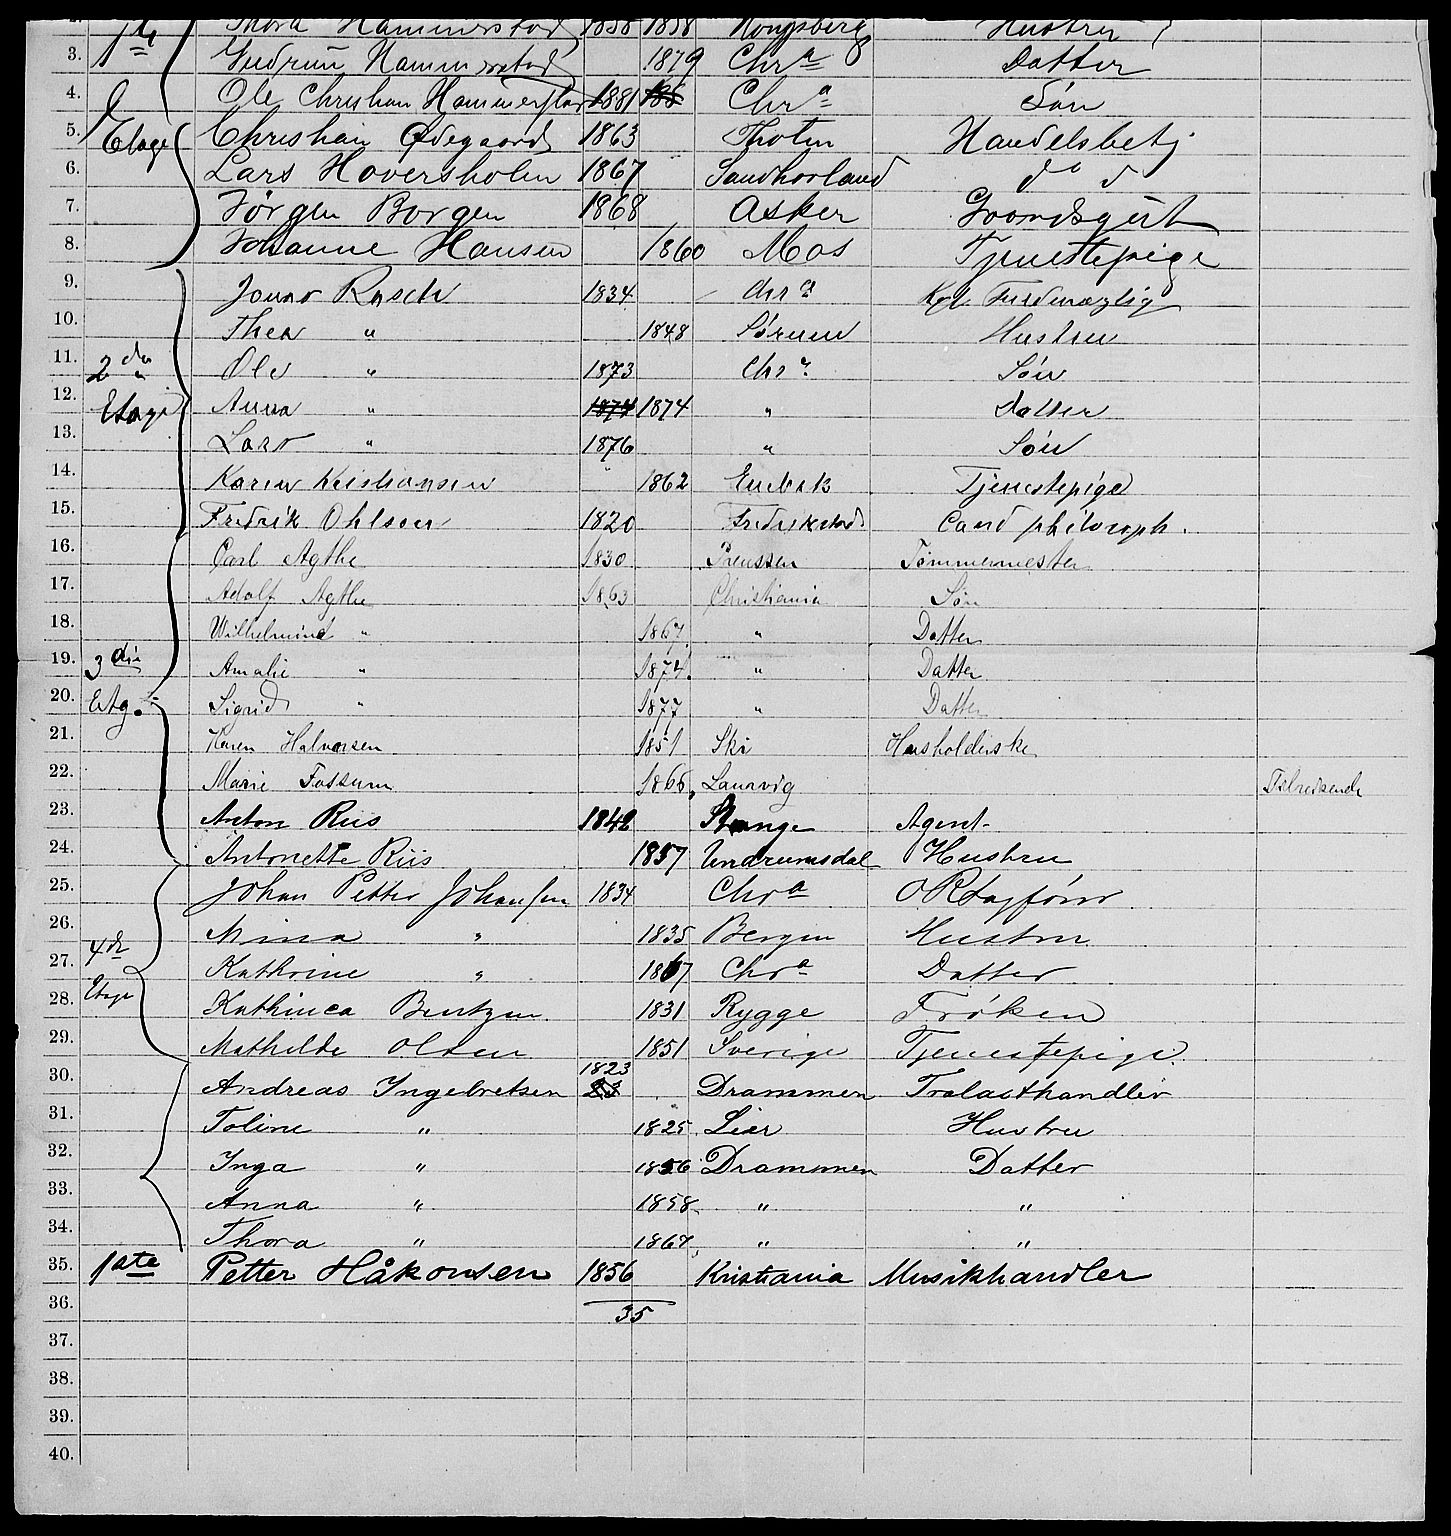 1ste Thora Hammerstad 1858 1858 Kongsberg Hustru
3. Gudrun Hammerstad 1879 Chra Datter
4. Ole Christian Hammerstad 1881 Chra Søn
5. Etage Christian Ødegaard 1863 Thoten Handelsbetj
6. Lars Hoversholm 1867 Søndhorland do d
7. Jørgen Borgen 1868 Asker Goardsgut
8. Johanne Hansen 1860 Mos Tjenestepige
9. Jonas Rasch 1834 Chra Kgl. Fuldmægtig
10. Thea " 1848 Sørum Hustru
11. 2den Ole " 1873 Chra Søn
12. Etage Anna " 1874 1874 " Datter
13. Lars " 1876 " Søn
14. Karen Kristiansen 1862 Enebak Tjenestepige
15. Fredrik Ohlsen 1820 Fredrikstad Cand philosoph.
16. Carl Agthe 1830 Preussen Tømmermester
17. Adolf Agthe 1863 Christiania Søn
18. Wilhelmine " 1867 " Datter
19. 3die Amalie " 1874. " Datter
20. Etg. Sigrid " 1877 " Datter
21. Karen Halvorsen 1851 Ski Husholderske
22. Marie Fossum 1866, Laurvig Tilreisende
23. Anton Riis 1842 Stange Agent
24. Antonette Riis 1857 Undrumsdal Hustru
25. Johan Petter Johansen 1834 Chra ORsagfører
26. 4de Mina " 1835 Bergen Hustru
27. Kathrine " 1867 Chra Datter
28. Etage Kathinca Bentzen 1831 Rygge Frøken
29. Mathilde Olsen 1851 Sverige Tjenestepige.
30. Andreas Ingebretsen 1823 23 Drammen Tralasthandler
31. Toline " 1825 Lier Hustru
32. Inga " 1856 Drammen Datter
33. Anna " 1858 " "
34. Thora " 1867, " "
35. 1ste Petter Håkonsen 1856 Kristiania Musikhandler
36. 35
37.
38.
39.
40.